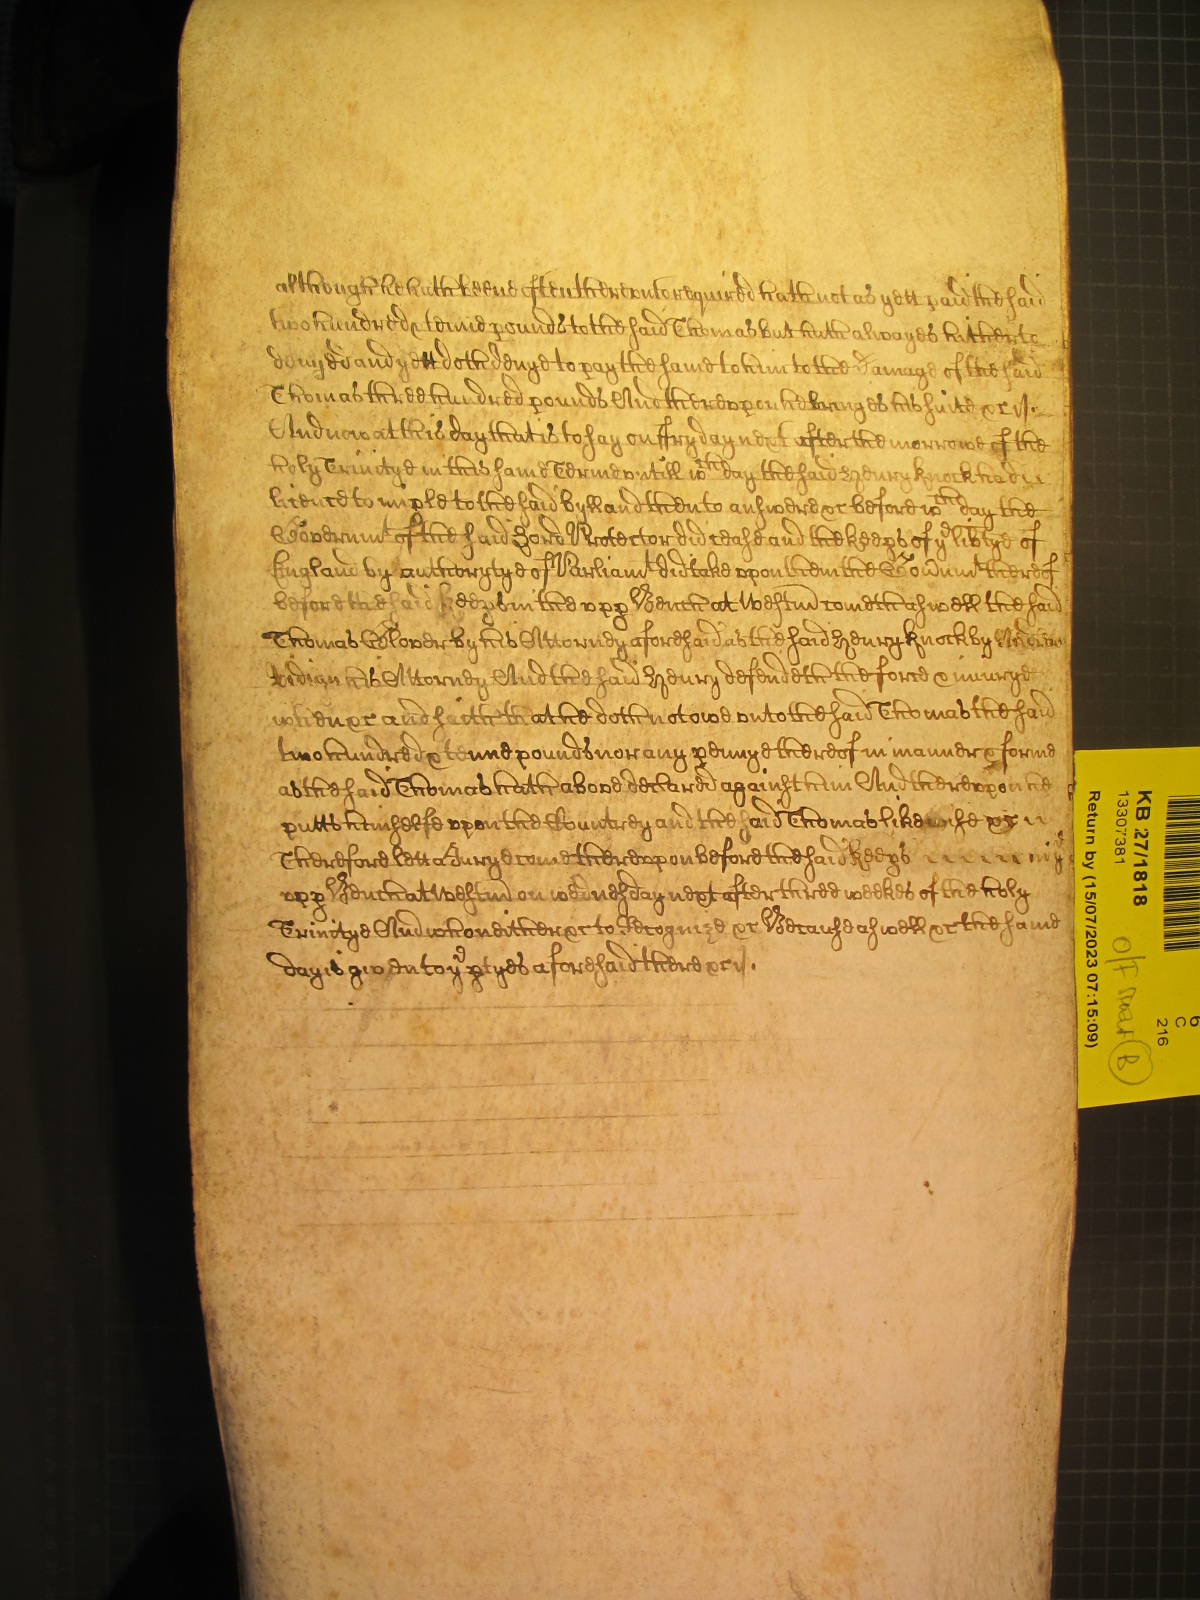 although he hath beene often thereunto required hath not as yett paid the said
two hundred & tenne pounds to the said Thomas but hath alwayes hitherto
denyed and yett doth denye to pay the same to him to the damage of the said
Thomas three hundred pounds And thereuppon he bringes his suite &c //.
And now at this day that is to say on ffryday next after the morrowe of the
holy Trinitye in this same Terme untill wch day the said Henry Knock had
licence to imple to the said byll and then to answere &c before wch day the
Governmt of the said Lord Protector did cease and the Keeps of ye libtye of
England by authorytye of Parliamt did take uppon them the Governmt thereof
before the said Keeps in the upp Bench at Westm cometh aswell the said
Thomas Glover by his Attorney aforesaid as the said Henry Knock by
his Attorney And the said Henry defendeth the force & iniurye
when &c and saith that he doth not owe unto the said Thomas the said
two hundred & tenne pounds nor any pennye thereof in manner & forme
as the said Thomas hath above declared against him And thereuppon he
putts himselfe uppon the Countrey and the said Thomas likewise &c
Therefore lett a Jurye come thereuppon before the said Keeps in ye
upp Bench at Westm on wednesday next after three weekes of the holy
Trinitye And who neither &c to Recognize &c Because aswell &c the same
day is given to ye ptyes aforesaid there &c //.
KB 27/1818
13307381
Return by (15/07/2023 07:15:09)
6
C
216
B